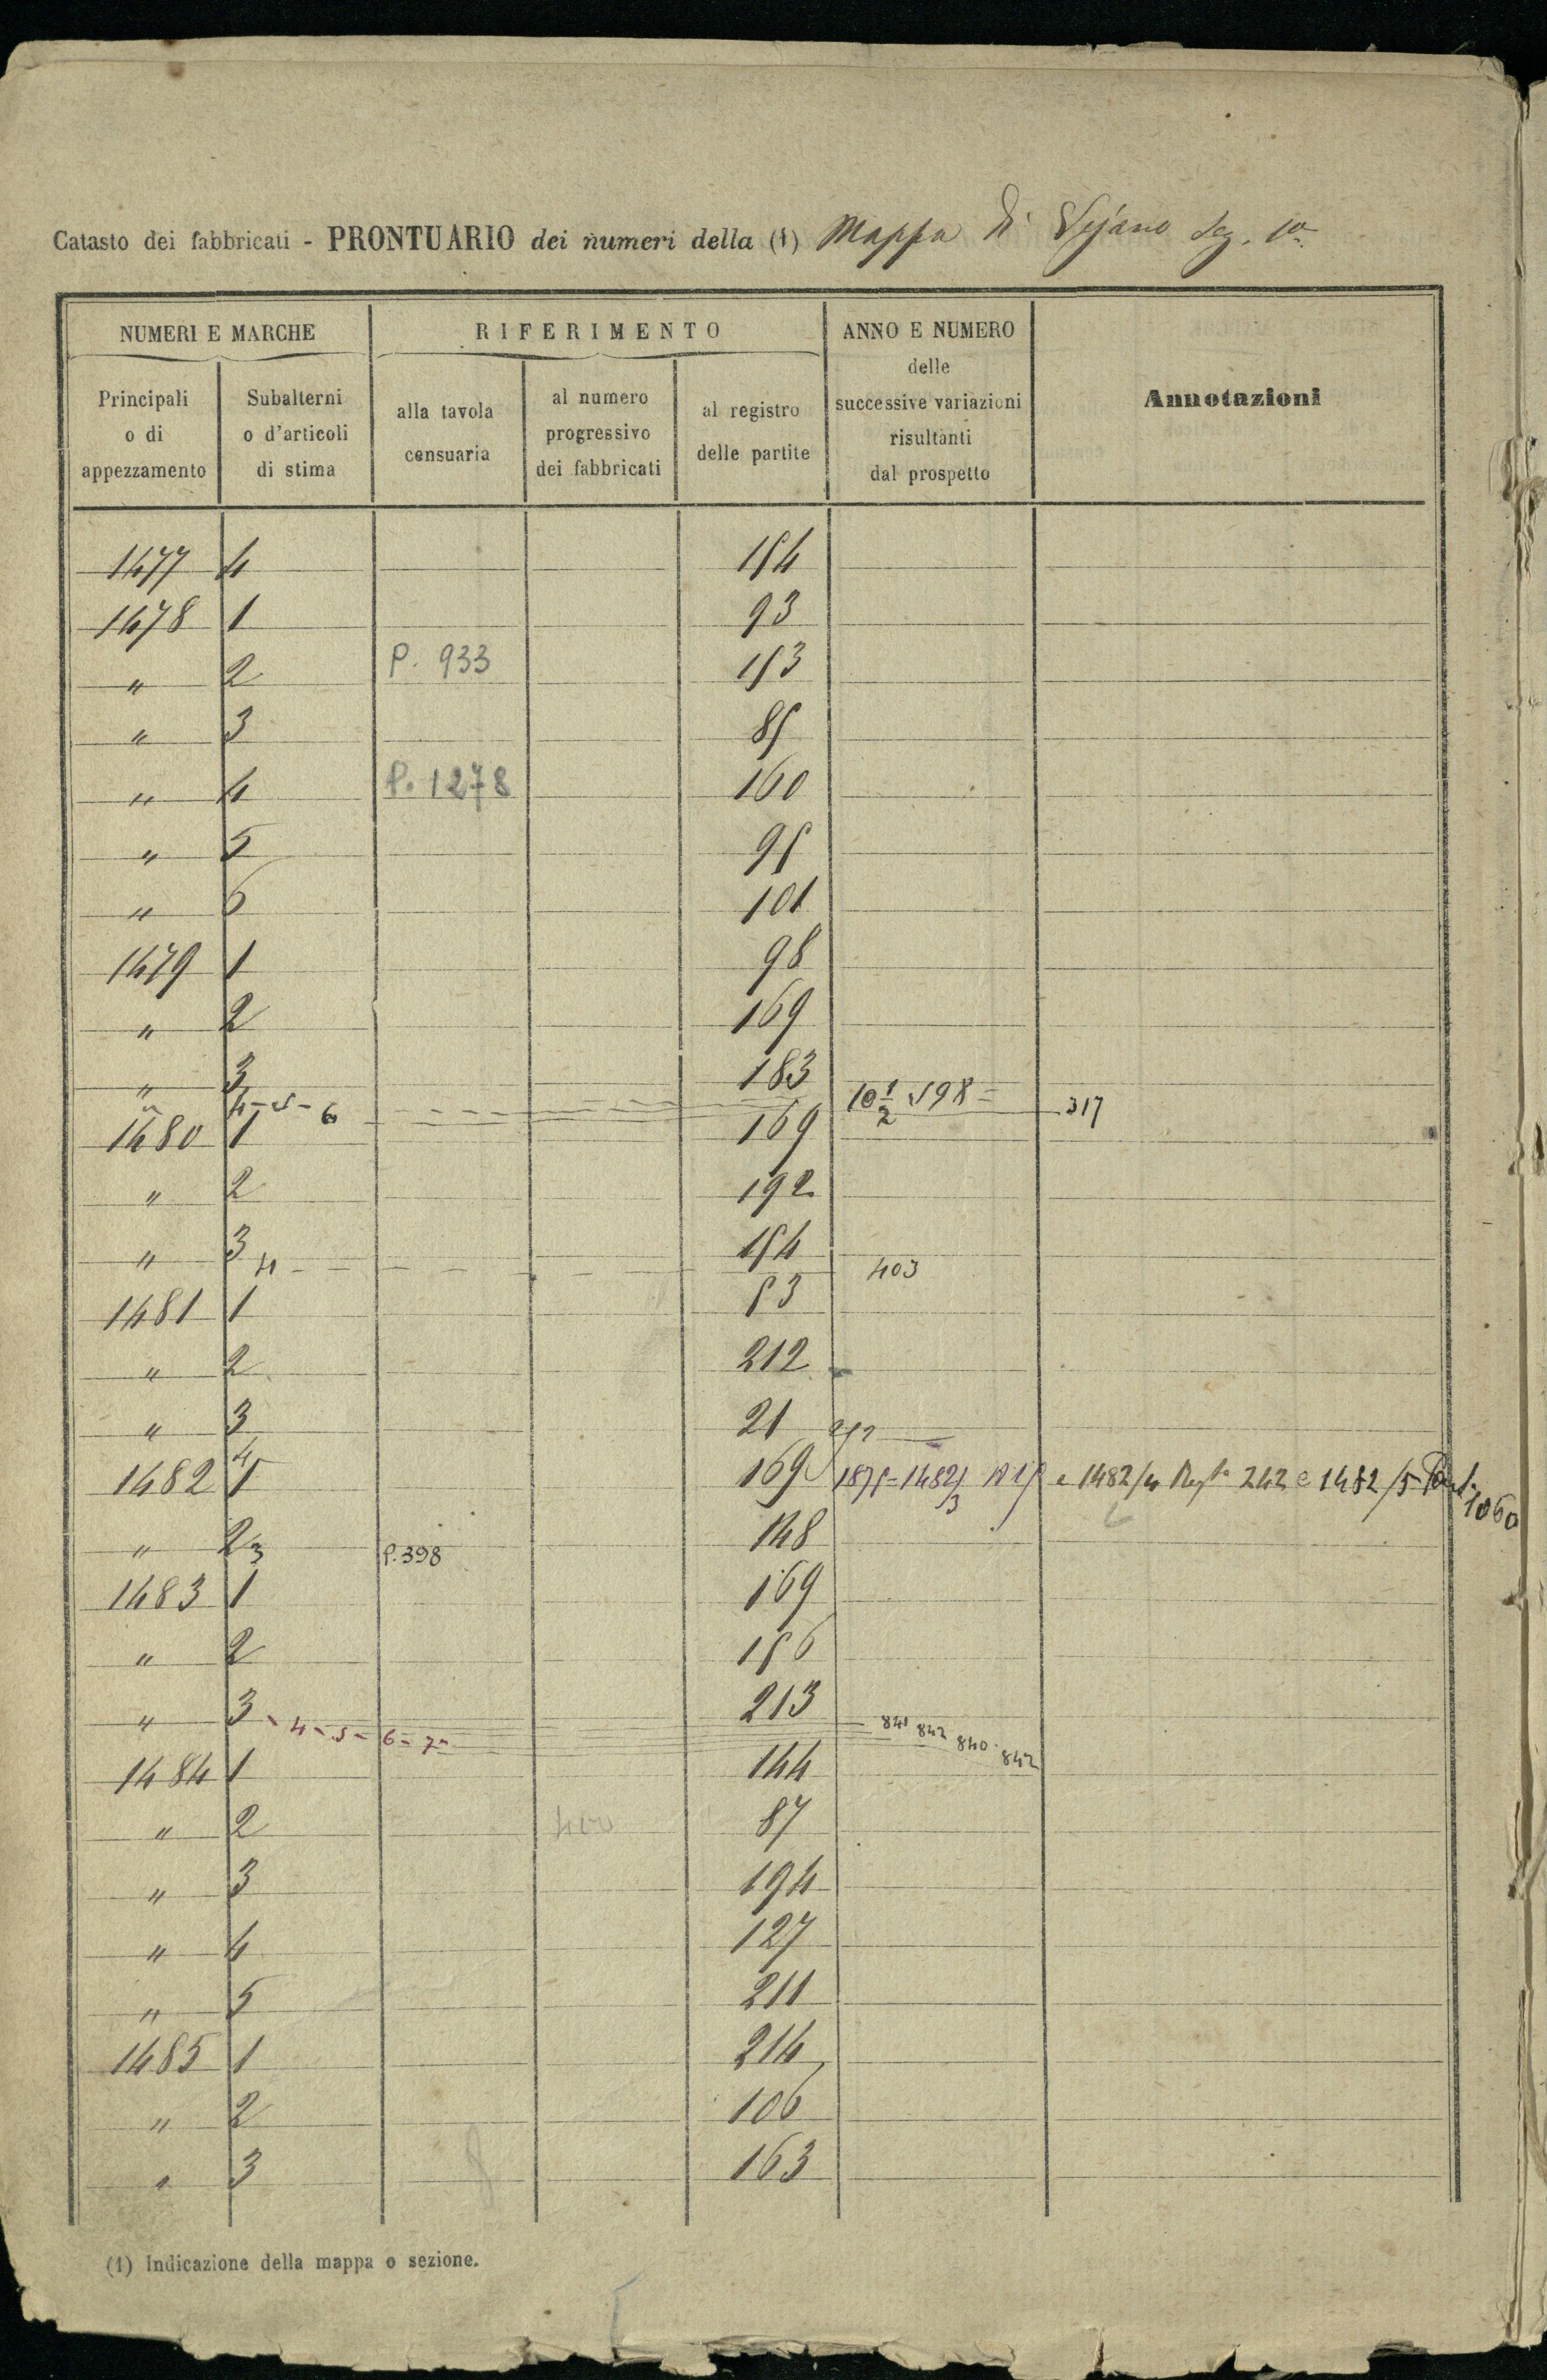 Catasto dei fabbricati - PRONTUARIO dei numeri della (1) Mappa di Vejano Sez. 1a
NUMERI E MARCHE
Principali
o di
appezzamento
Subalterni
o d'articoli
di stima
RIFERIMENTO
alla tavola
censuaria
al numero
progressivo
dei fabbricati
al registro
delle partite
ANNO E NUMERO
delle
successive variazioni
risultanti
dal prospetto
Annotazioni
1477 4 154
1478 1 93
" 2 P. 933 153
" 3 85
" 4 P. 1278 160
" 5 95
" 6 101
1479 1 98
" 2 169
" 3 183
" 4-5-6 10 1/2 598 = 317
1480 1 169
" 2 192
" 3 154
4 - 403
1481 1 53
" 2 212
" 3 21
4
1482 1 169 1875=1482/3 e 1482/4 242 e 1482/5 Part. 1060
" 2 148
3 P. 398
1483 1 169
" 2 156
" 3 213
4-5-6-7 841 842 840 842
1484 1 144
" 2 400 87
" 3 194
" 4 127
" 5 211
1485 1 214
" 2 106
" 3 163
(1) Indicazione della mappa o sezione.